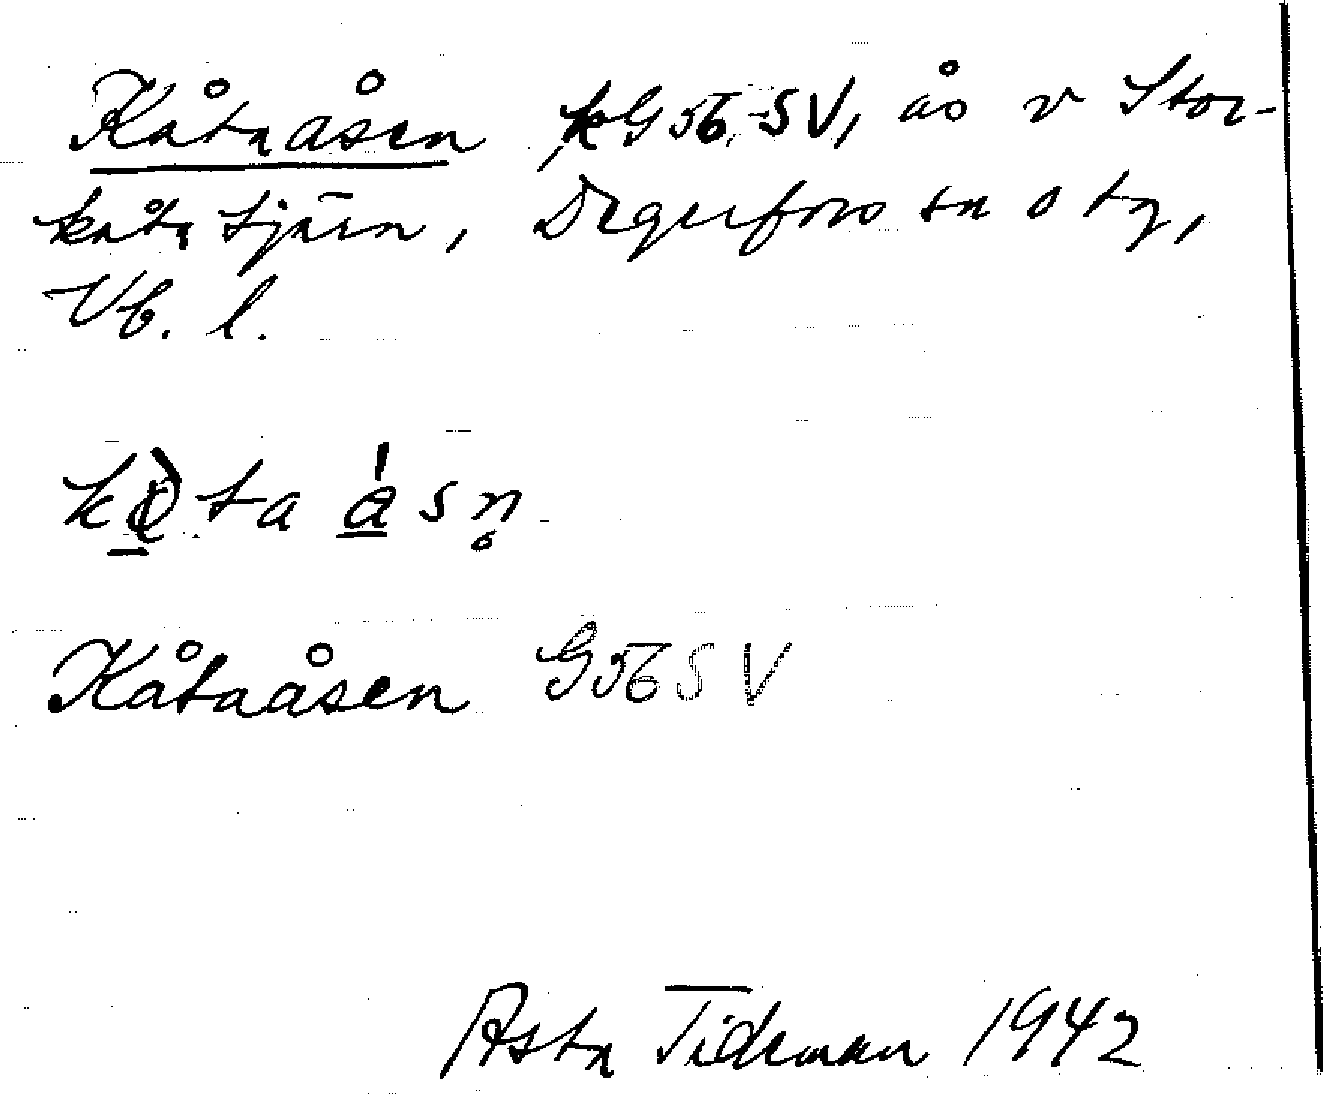 Kåtaåsen k G 56 SV, ås v Stor-
kåtatjärn, Degerfors sn o tg,
Vb. l.
kòta ásn̥
Kåtaåsen G 56 SV
Asta Tideman 1942